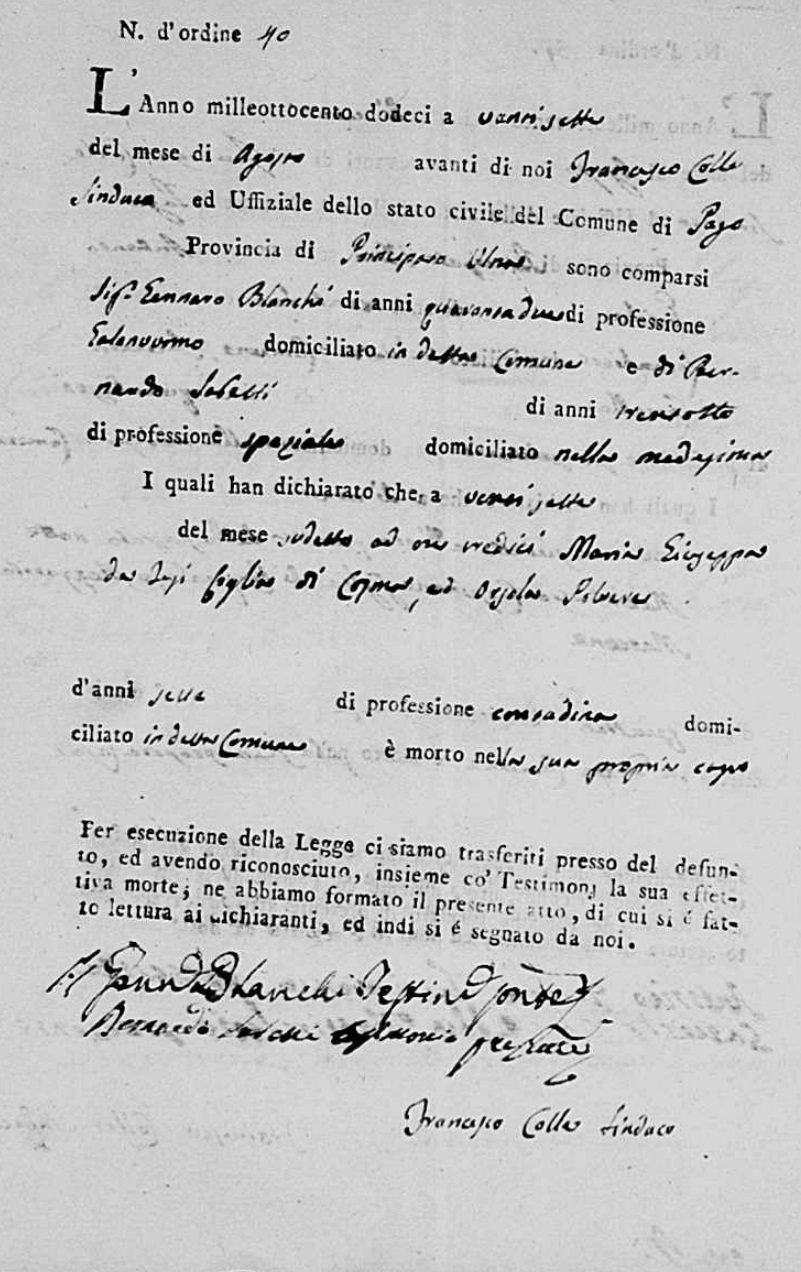 N. d'ordine 40
L'Anno milleottocento dodeci a venti sette
del mese di Agosto avanti di noi Francesco Colle
Sindaco ed Uffiziale dello stato civile del Comune di Pago
Provincia di Principato Ultra sono comparsi
Sig.r Gennaro Bianchi di anni quarantadue di professione
Galantuomo domiciliato in detto Comune e di Ber-
nardo di anni trentotto
di professione speziale domiciliato nella medesima
I quali han dichiarato che, a venti sette
del mese sudetto ad ore tredici Maria Giuseppa
figlia di Cosmo, ed Orsola
d'anni sette di professione contadina domi-
ciliato in detto Comune è morto nella sua propria casa
Per esecuzione della Legge ci siamo trasferiti presso del defun-
to, ed avendo riconosciuto, insieme co' Testimonj la sua effet-
tiva morte; ne abbiamo formato il presente atto, di cui si é fat-
to lettura ai dichiaranti, ed indi si é segnato da noi.
Bianchi
Bernardo
Francesco Colle Sindaco